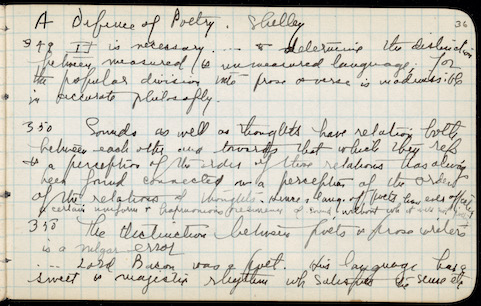 A Defence of Poetry. Shelley
36
349 It is necessary ... to determine the distinction
between measured & unmeasured language; for
the popular division into prose & verse is inadmissible
in accurate philosophy.
350 Sounds as well as thoughts have relation both
between each other and towards that which they rep
& a perception of the order of those relations has always
been found connected w a perception of the order
of the relations of thoughts. Hence lang. of poets has ever affected
a certain uniform & harmonious recurrence of sound without wh it were not
350 The distinction between poets & prose writers
is a vulgar error
... Lord Bacon was a poet. His language has a
sweet & majestic rhythm wh satisfies the sense etc